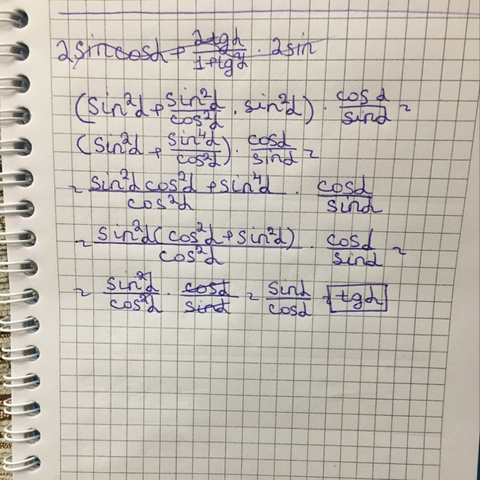 2sincosα + 2tgα/1+tg²α · 2sin
(sin²α + sin²α/cos²α · sin²α) · cosα/sinα =
(sin²α + sin⁴α/cos²α) · cosα/sinα =
= sin²α cos²α + sin⁴α/cos²α · cosα/sinα
= sin²α(cos²α + sin²α)/cos²α · cosα/sinα =
= sin²α/cos²α · cosα/sinα = sinα/cosα = tgα